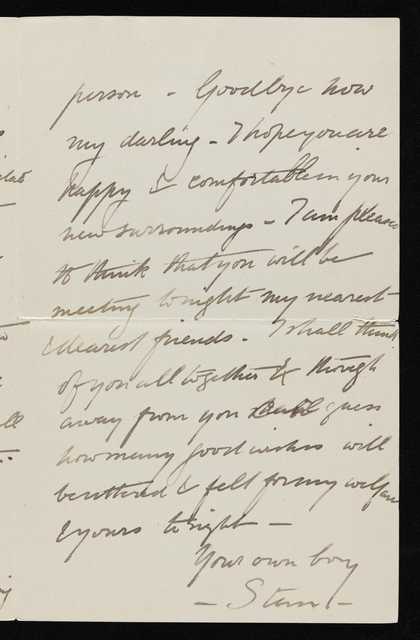 person - Goodbye now
my darling - I hope you are
happy & comfortable in your
new surroundings - I am please
to think that you will be
meeting tonight my nearest
& dearest friends. I shall think
of you all together & though
away from you guess
how many good wishes will
be uttered & felt for my welfare
& yours tonight -
Your own boy
-
ll